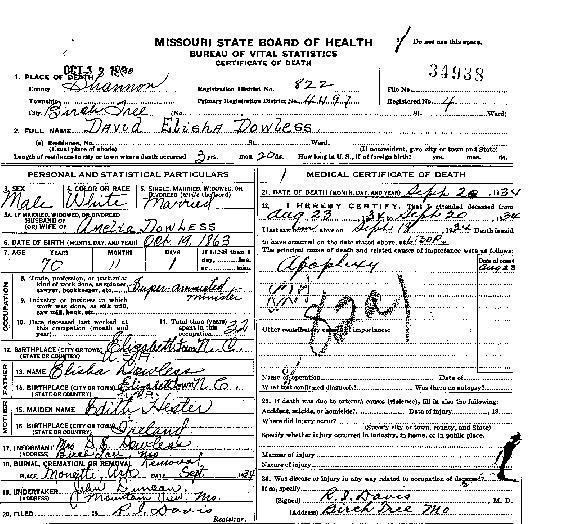 MISSOURI STATE BOARD OF HEALTH
BUREAU OF VITAL STATISTICS
CERTIFICATE OF DEATH
Do not use this space.
1. PLACE OF DEATH
County Shannon Registration District No. 822 File No. 34938
Township Primary Registration District No. 4497 Registered No. 4
City Birch Tree (No. St. Ward)
2. FULL NAME David Elisha Dowless
(a) Residence, No. St. Ward.
(Usual place of abode) (If nonresident, give city or town and State)
Length of residence in city or town where death occurred 2 yrs. mos. 20 ds. How long in U. S., if of foreign birth? yrs. mos. ds.
PERSONAL AND STATISTICAL PARTICULARS
3. SEX Male
4. COLOR OR RACE White
5. SINGLE, MARRIED, WIDOWED, OR DIVORCED (write the word) Married
5A. IF MARRIED, WIDOWED, OR DIVORCED
HUSBAND OF
(OR) WIFE OF Amelia Dowless
6. DATE OF BIRTH (MONTH, DAY, AND YEAR) Oct. 19, 1863
7. AGE YEARS MONTHS DAYS If LESS than 1 day, hrs. or min.
70 11 1
OCCUPATION
8. Trade, profession, or particular kind of work done, as spinner, sawyer, bookkeeper, etc. Super-annuated minister
9. Industry or business in which work was done, as silk mill, saw mill, bank, etc.
10. Date deceased last worked at this occupation (month and year)
11. Total time (years) spent in this occupation 32
12. BIRTHPLACE (CITY OR TOWN) Elizabethtown N. C.
(STATE OR COUNTRY)
FATHER
13. NAME Elisha Dowless
14. BIRTHPLACE (CITY OR TOWN) Elizabethtown N. C.
(STATE OR COUNTRY)
MOTHER
15. MAIDEN NAME Edith Hester
16. BIRTHPLACE (CITY OR TOWN)
(STATE OR COUNTRY) Ireland
17. INFORMANT Mrs D. E. Dowless
(ADDRESS) Birch Tree Mo
18. BURIAL, CREMATION, OR REMOVAL Removal
PLACE Monette, Ark DATE Sept 1934
19. UNDERTAKER John Duncan
(ADDRESS) Mountain View, Mo.
20. FILED R. I. Davis
Registrar.
MEDICAL CERTIFICATE OF DEATH
21. DATE OF DEATH (MONTH, DAY, AND YEAR) Sept 20 1934
22. I HEREBY CERTIFY, That I attended deceased from
Aug 23 1934 to Sept 20, 1934
I last saw him on Sept 19 1934 Death is said
to have occurred on the date stated above, at
The principal cause of death and related causes of importance were as follows:
Date of onset
Apoplexy Aug 23
82a
Other contributory causes of importance:
Name of operation Date of
What test confirmed diagnosis? Was there an autopsy?
23. If death was due to external causes (violence), fill in also the following:
Accident, suicide, or homicide? Date of injury 19
Where did injury occur?
(Specify city or town, county, and State)
Specify whether injury occurred in industry, in home, or in public place.
Manner of injury
Nature of injury
24. Was disease or injury in any way related to occupation of deceased?
If so, specify
(Signed) R. I. Davis M. D.
(Address) Birch Tree Mo